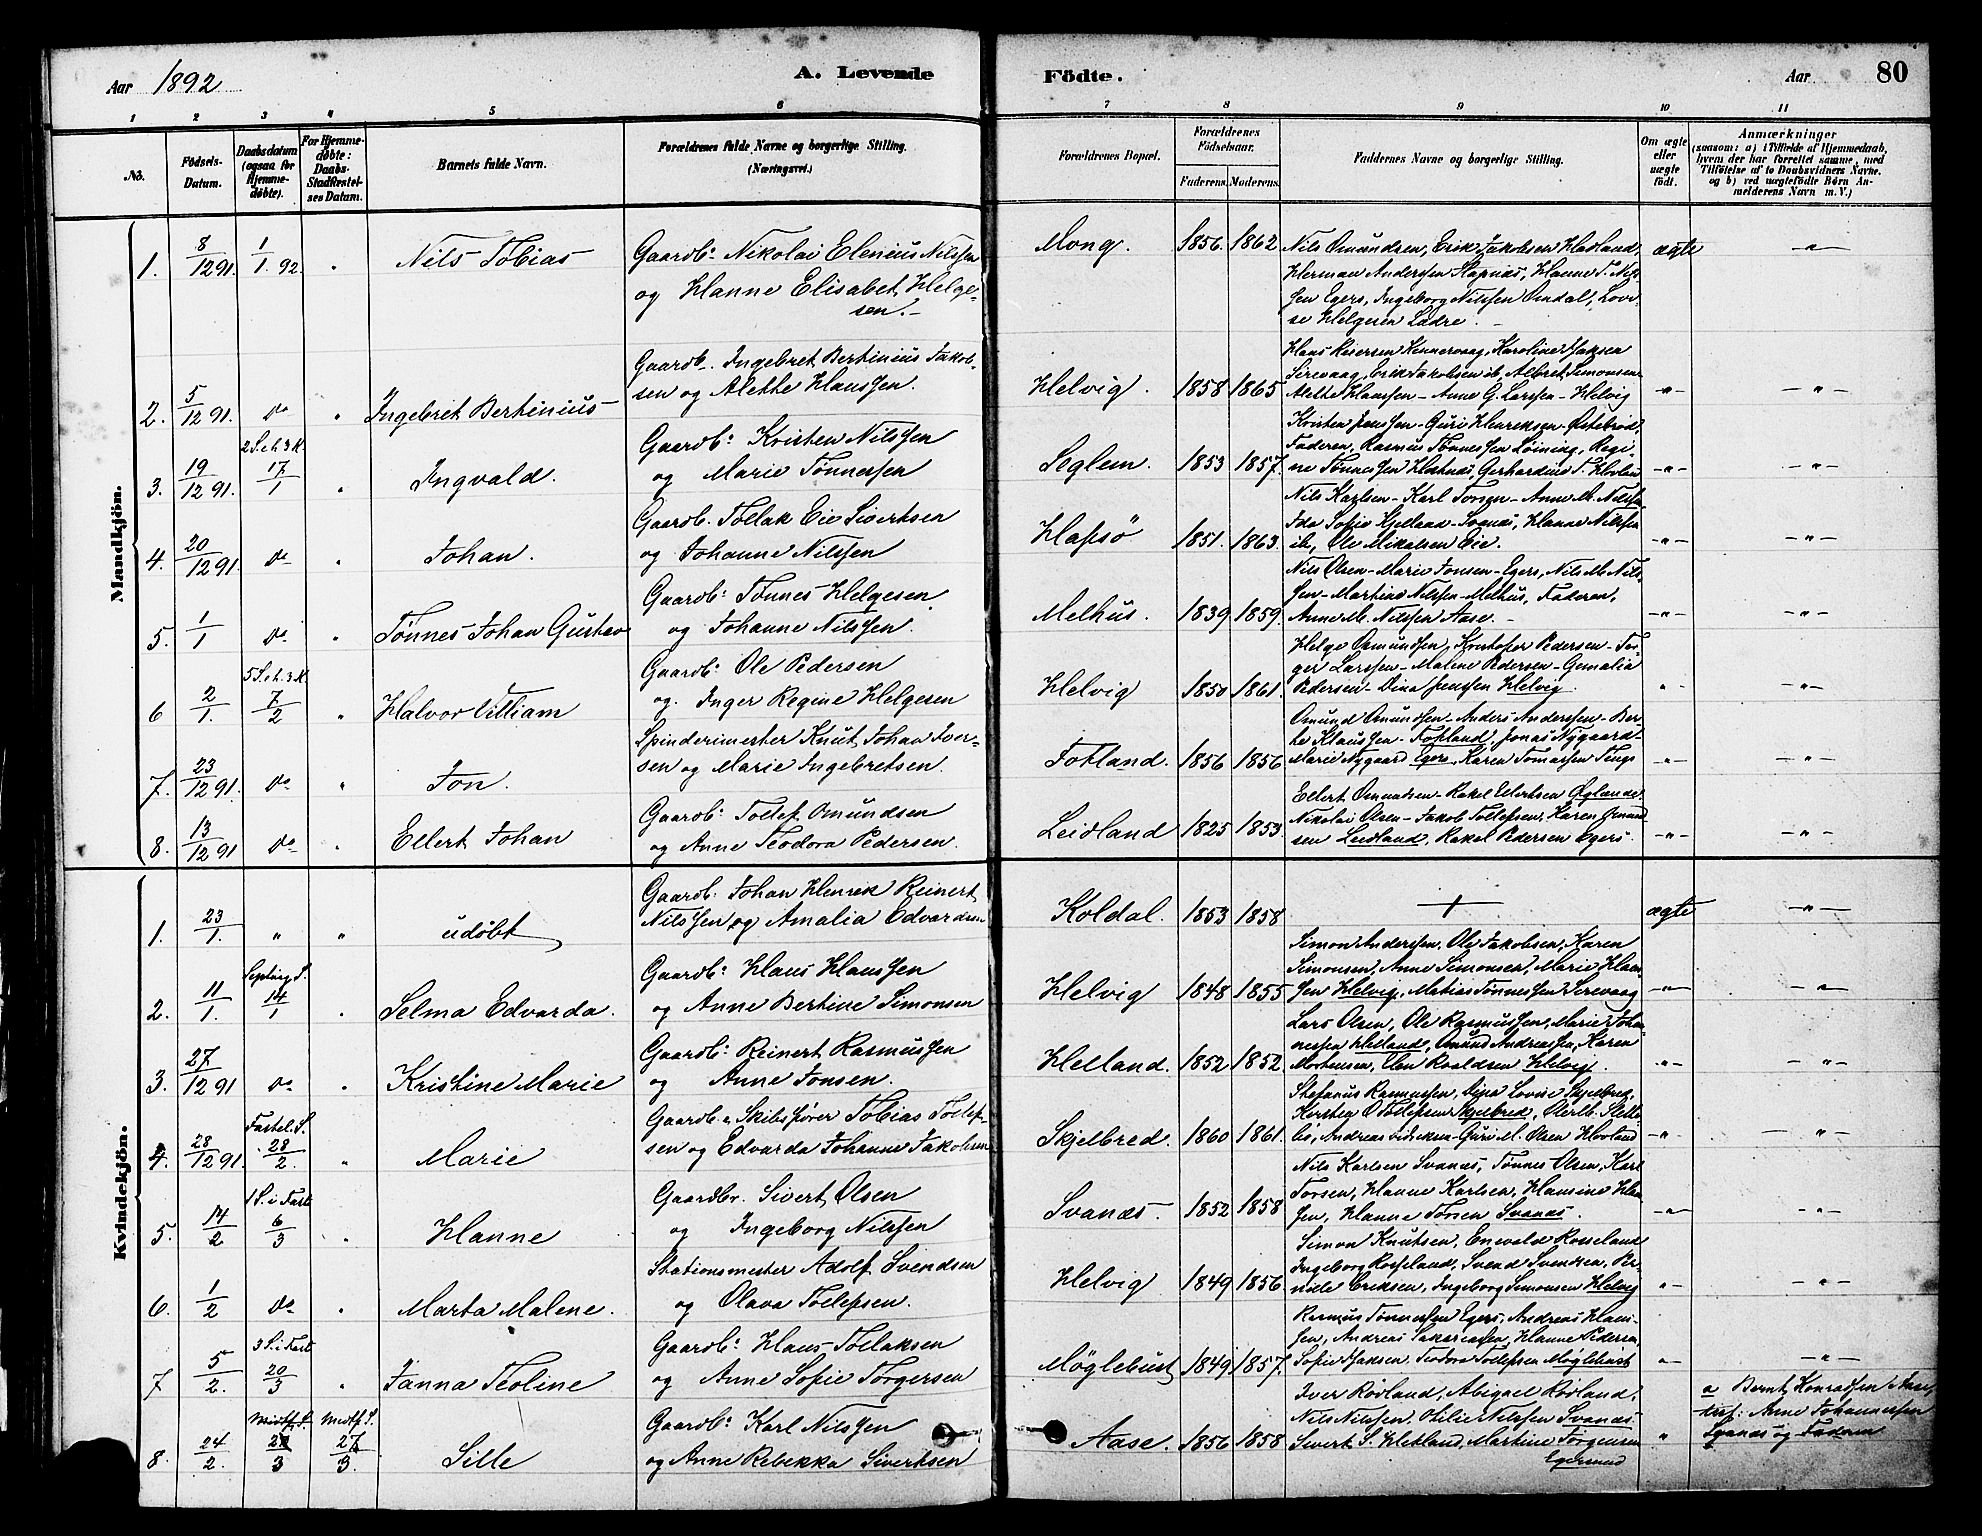 Aar 1892
A. Levende
Födte.
Aar
80
1 2 3 4 5 6 7 8 9 10 11
No.
Födsels-Datum.
Daabsdatum (ogsaa for Hjemmedøbte).
For Hjemmedøbte: Daabs-Stadfæstelses Datum.
Barnets fulde Navn.
Forældrenes fulde Navne og borgerlige Stilling. (Næringsvei.)
Forældrenes Bopæl.
Forældrenes Födselsaar.
Faderens. Moderens.
Faddernes Navne og borgerlige Stilling.
Om ægte eller uægte födt.
Anmærkninger
(saasom: a) i Tilfælde af Hjemmedaab,
hvem der har forrettet samme, med
Tilföielse af to Daabsvidners Navne.
og b) ved uægtefödte Börn An-
melderens Navn m. V.)
Mandkjön.
1. 8/12 91. 1/1. 92. " Nils Tobias
Gaardb: Nikolai Elenius Nilssen
og Hanne Elisabet Helge-
sen.-
Mong. 1856. 1862
Nils Omundsen, Erik Jakobsen Hadland,
Herman Anderssen Hapnäs, Hanne T. Nils-
sen Egers, Ingeborg Nilssen Omdal, Lovi-
se Helgesen Ladre.
ægte -"-
2. 5/12 91. do " Ingebret Bertinius
Gaardb. Ingebret Bertinius Jakob-
sen og Alette Klaussen.
Helvig. 1858 1865
Hans Reiersen Hennervaag, Karoline Isaksen
Sirevaag, Erik Jakobsen ib, Albret Simonsen
Alette Klaussen - Anne G. Larssen - Helvig
-"- -"-
3. 19/12 91. 2 S. e. h. 3 K. 17/1 " Ingvald.
Gaardb: Kristen Nilssen
og Marie Tønnessen
Seglem. 1853 1857.
Kristen Jenssen - Guri Henriksen - Østebrød,
Faderen, Rasmus Tønnessen Løining, Regi-
ne Tønnessen Hatnäs, Gerhardius T.
-"- -"-
4. 20/12 91. do " Johan.
Gaardb. Tollak Eie Sivertsen
og Johanne Nilssen
Hapsø 1851. 1863.
Nils Karlsen - Karl Torsen - Anne M. Nilssen
Ida Sofie Kjelland - Svanäs, Hanne Nilssen
ib, Ole Mikalsen Eie.
-"- -"-
5. 1/1 do " Tønnes Johan Gustav
Gaardb: Tønnes Helgesen
og Johanne Nilssen.
Melhus. 1839 1859
Nils Olsen - Marie Jonsen - Egers, Nils M. Nils-
sen - Martine Nilssen - Melhus, Faderen,
Anne M. Nilssen Aase. -
-"- -"-
6 2/1. 5 S. e. h. 3 K. 7/2 " Halvor Villiam
Gaardb: Ole Pedersen
og. Inger Regine Helgesen
Helvig 1850 1861.
Helge Omundsen, Kristofer Pedersen - Tor-
ger Larssen - Malene Pedersen - Gunalia
Pedersen - Dina Jenssen Helvig.
" - -"-
7. 23/12 91. do " Jon.
Spinderimester Knut Johan Iver-
sen og Marie Ingebretsen.
Fotland. 1856 1856
Omund Omundsen - Anders Anderssen - Ber-
te Klaussen - Fotland, Jonas Nygaard
Marie Nygaard Egers, Karen Tomassen Tengs
-"- -"-
8. 13/12 91 do " Ellert Johan
Gaardb: Tollef Omundsen
og Anne Teodora Pedersen.
Leidland 1825 1853.
Ellert Omundsen - Rakel Ellertsen Øglænde.
Nikolai Olsen - Jakob Tollefsen, Karen Omund-
sen Leidland, Rakel Pedersen Egers.
-"- -"-
Kvindekjön.
1. 23/1. " " udøbt
Gaardb. Johan Henrik Reinert
Nilssen og Amalia Edvardsen
Koldal. 1853 1858
ægte -"-
2. 11/1. Septuag. S. 14/1 . Selma Edvarda.
Gaardb: Klaus Klaussen
og Anne Bertine Simonsen
Helvig 1848 1855
Simon Anderssen, Ole Jakobsen, Karen
Simonsen, Anne Simonsen, Marie Klaus-
sen Helvig, Matias Tønnessen Sirevaag
-"- -"-
3. 27/12 91 do " Kristine Marie
Gaardb: Reinert Rasmussen
og Anne Jonsen.
Helland. 1852 1852
Lars Olsen, Ole Rasmussen, Marie Johan-
nessen Helland, Omund Andreassen, Karen
Mortensen, Elen Roaldsen Helvig.
-"- -"-
4. 28/12 91. Fastel. S. 28/2. " Marie
Gaardb. & Skibsfører Tobias Tollef-
sen og Edvarda Johanne Jakobsen
Skjelbred. 1860 1861.
Stefanus Rasmussen, Lovise Skjelbred,
O. Tollefsen Skjelbred,
Andreas - Guri M. Olsen Hovland
-"- -"-
5. 14/2 1 S. i Faste 6/3 " Hanne
Gaardbr. Sivert Olsen
og Ingeborg Nilssen
Svanæs. 1852 1858
Nils Karlsen Svanæs, Tønnes Olsen, Karl
Torsen, Hanne Karlsen, Hansine Klau-
sen, Hanne Torsen Svanæs.
-"- -"-
6. 1/2 do " Marta Malene.
Stationsmester Adolf Svendsen
og Olava Tollefsen.
Helvig 1849 1856
Simon Knutsen, Enevald Rosseland
Ingeborg Rosseland, Svend Svendsen, Per-
nille Eriksen, Ingeborg Simonsen Helvig
"- -"-
7 5/2. 3 S. i Fast. 20/3 " Janna Teoline
Gaardb: Klaus Tollaksen
og Anne Sofie Torgersen
Møglebust 1849 1857.
Rasmus Tønnessen Egers, Andreas Klaus-
sen, Andreas Sakariassen, Hanne Pedersen,
Sofie Isaksen. Teodora Tollefsen Møglebust
"- -"-
8. 24/2. Midtf. S. 27/3 Midtf. S. 27/3. Sille
Gaardb: Karl Nilssen
og Anne Rebekka Sivertsen
Aase. 1856 1858
Iver Røvland, Abigael Røvland,
Nils Nilssen, Otilie Nilssen Svanæs
Sivert S. Hetland, Martine Torgersen
Egersund
" a Bernt Konradsen Aase
Anne Johannessen
Svanæs og Faderen